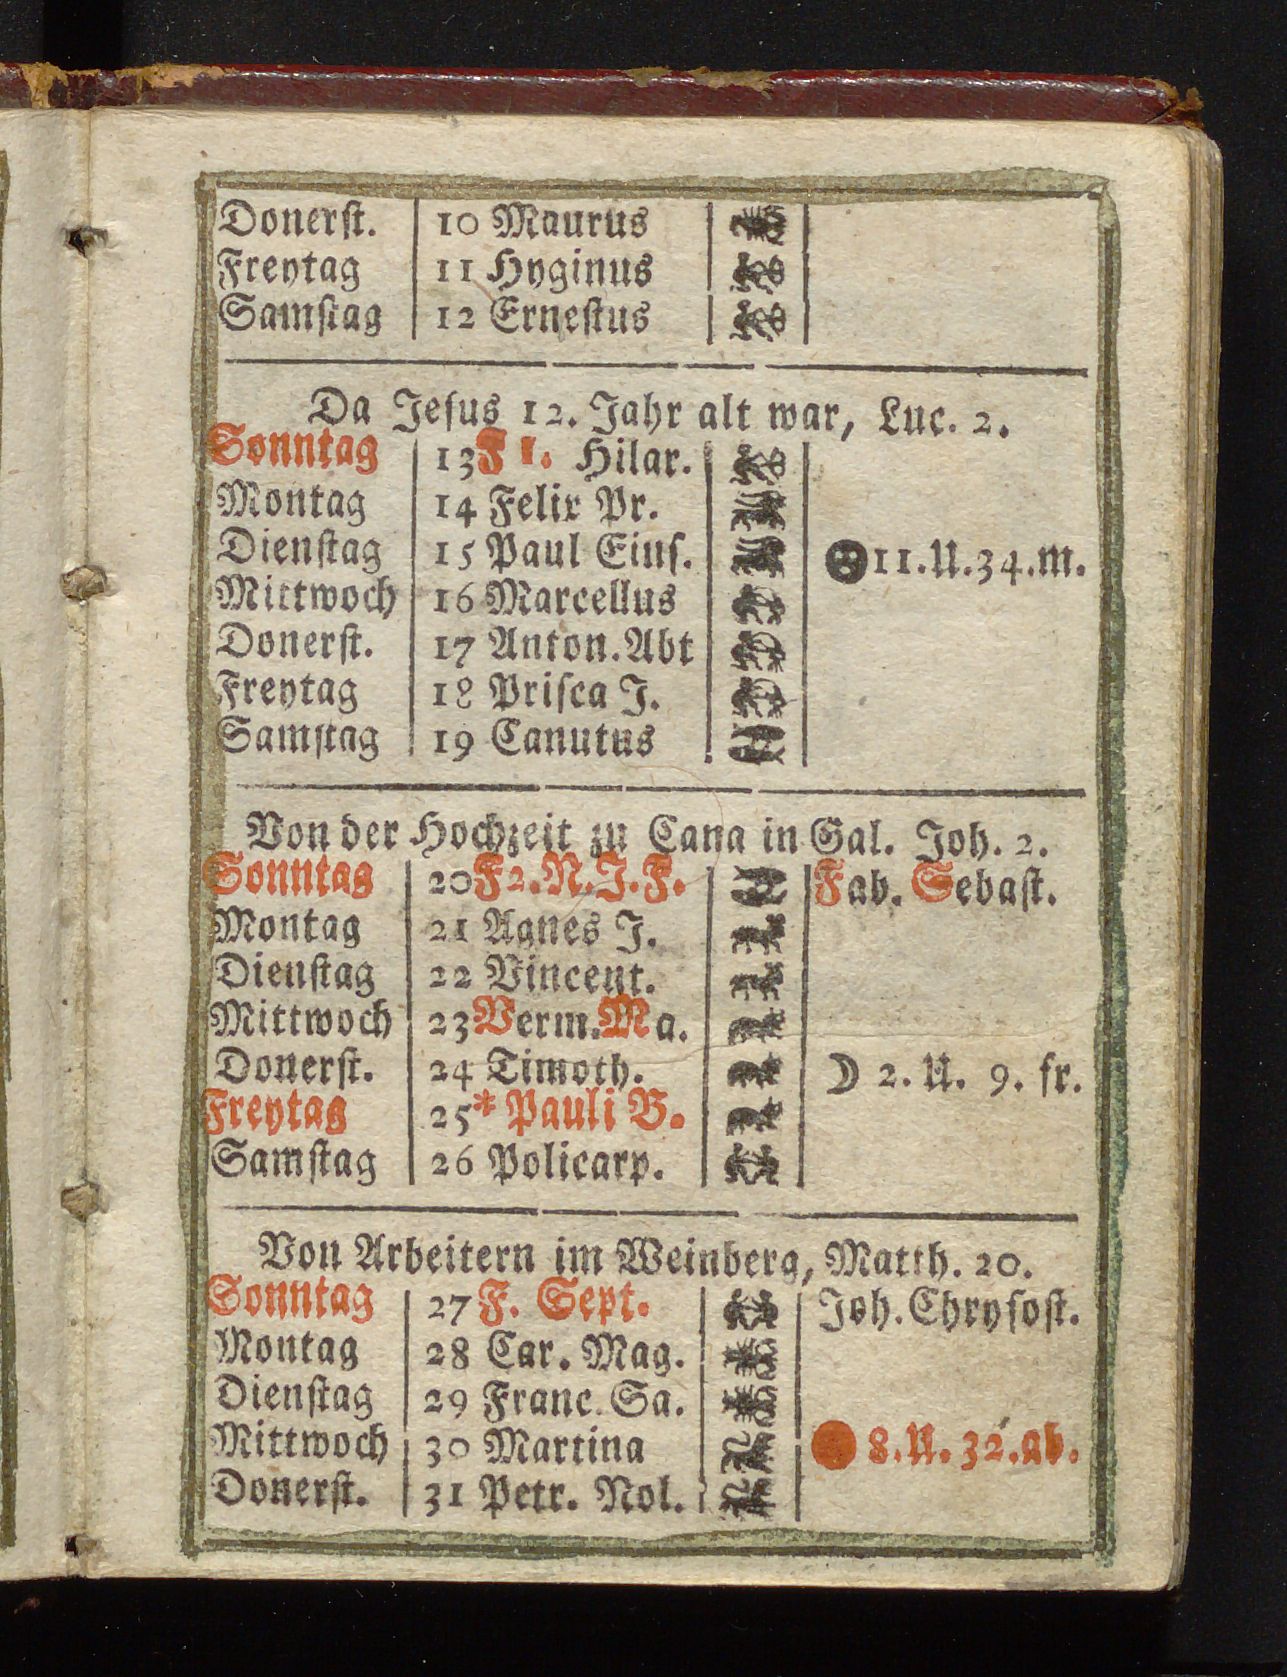 Donerst. 10 Maurus
Freytag 11 Hyginus
Samstag 12 Ernestus
Da Jesus 12. Jahr alt war, Luc. 2.
Sonntag 13 F 1. Hilar.
Montag 14 Felix Pr.
Dienstag 15 Paul Eins. 11.U.34.m.
Mittwoch 16 Marcellus
Donerst. 17 Anton. Abt
Freytag 18 Prisca J.
Samstag 19 Canutus
Von der Hochzeit zu Cana in Gal. Joh. 2.
Sonntag 20 F2.N.J.F. Fab. Sebast.
Montag 21 Agnes J.
Dienstag 22 Vincent.
Mittwoch 23 Verm.Ma.
Donerst. 24 Timoth. 2. U. 9. fr.
Freytag 25* Pauli B.
Samstag 26 Policarp.
Von Arbeitern im Weinberg, Matth. 20.
Sonntag 27 F. Sept. Joh. Chrysost.
Montag 28 Car. Mag.
Dienstag 29 Franc. Sa.
Mittwoch 30 Martina 8.U.32.ab.
Donerst. 31 Petr. Nol.